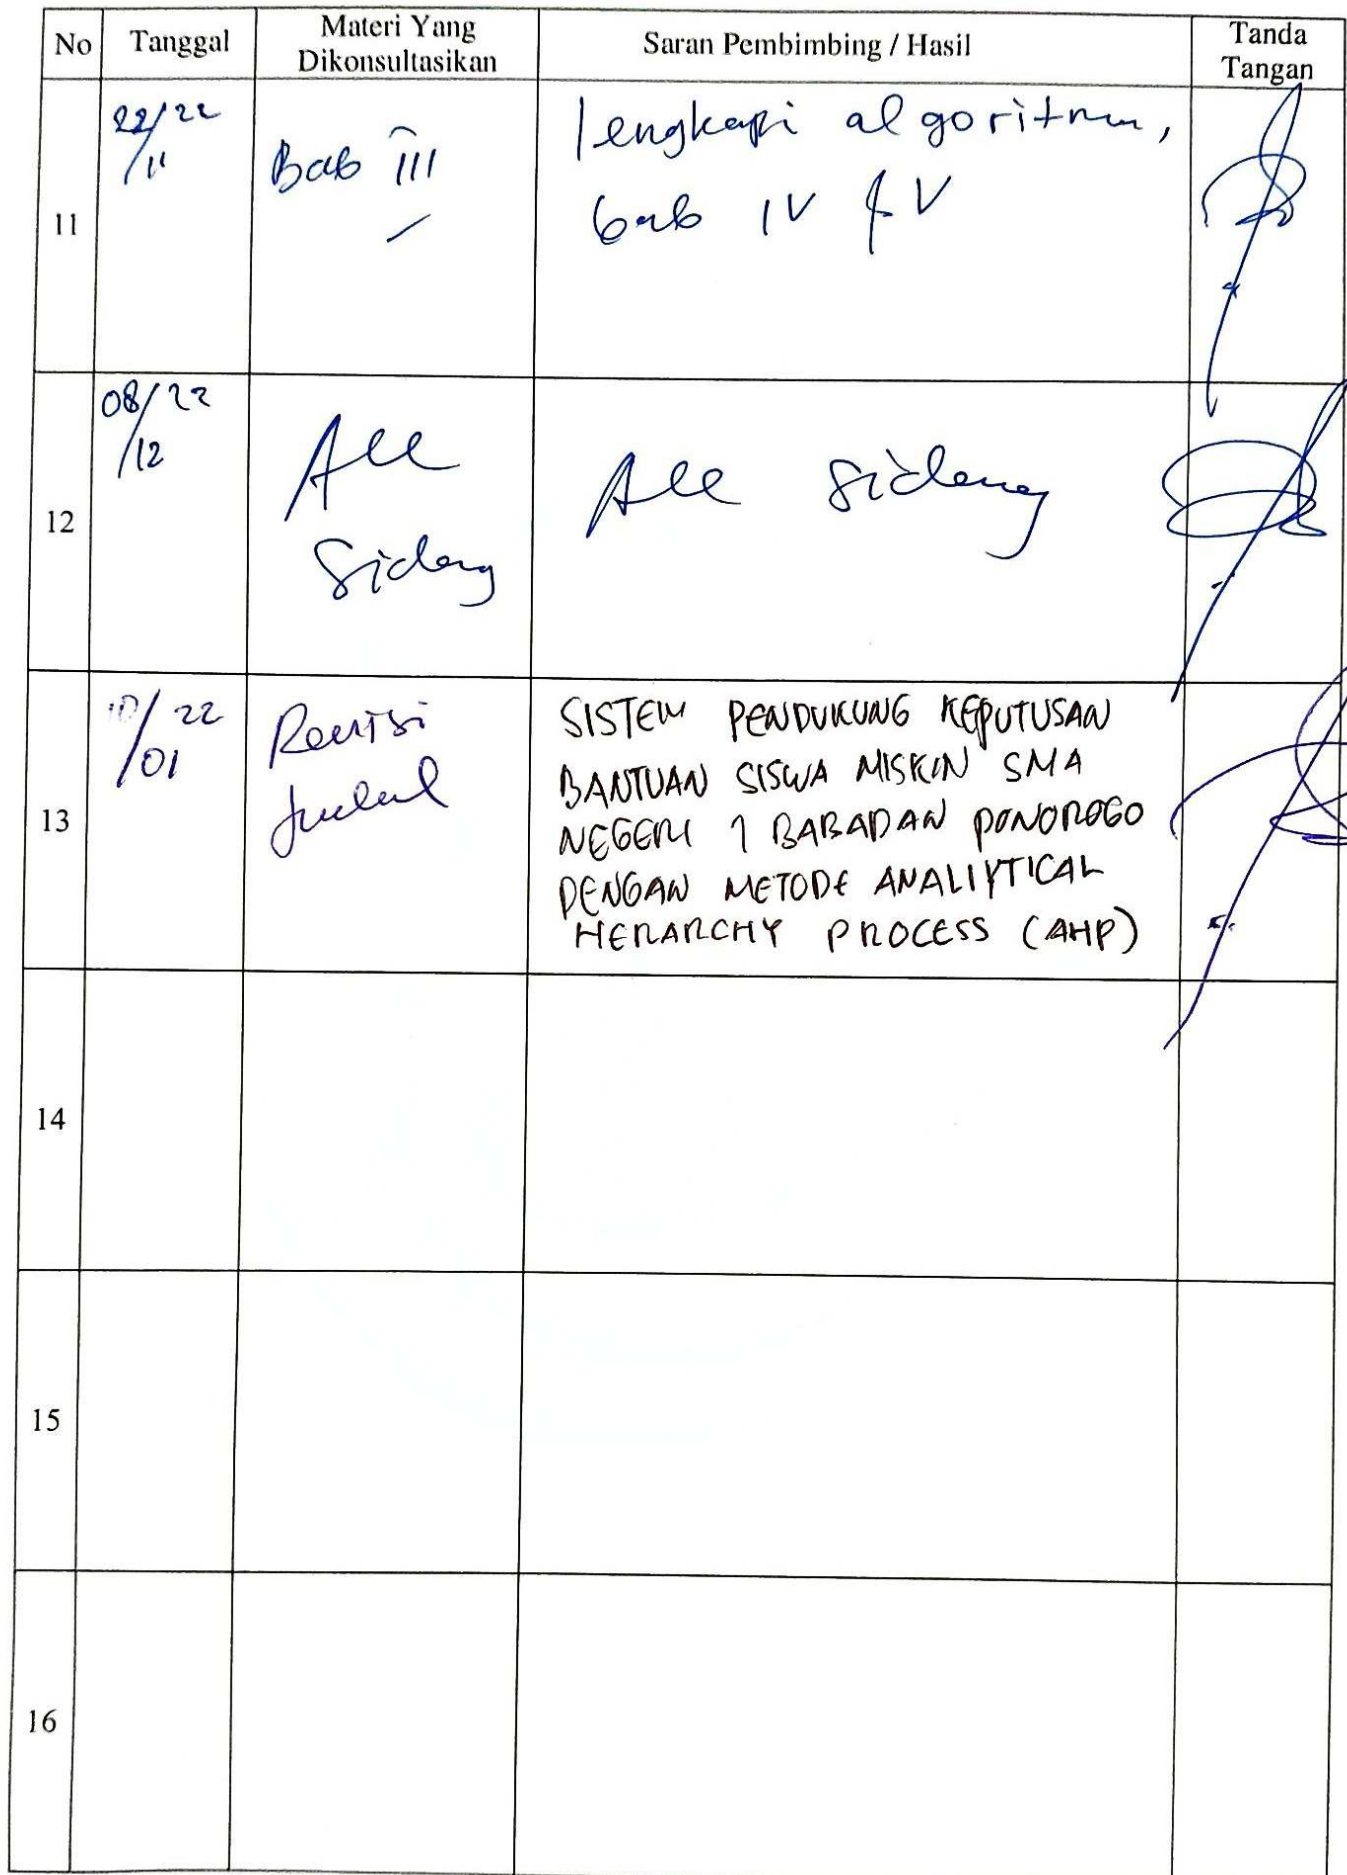 No Tanggal Materi Yang Dikonsultasikan Saran Pembimbing / Hasil Tanda Tangan
11 22/22 /11 Bab III lengkapi algoritma,
bab IV & V
12 08/22 /12 Acc Acc Sidang
Sidang
13 10/22 /01 Revisi SISTEM PENDUKUNG KEPUTUSAN
Judul BANTUAN SISWA MISKIN SMA
NEGERI 1 BABADAN PONOROGO
DENGAN METODE ANALIYTICAL
HERARCHY PROCESS (AHP)
14
15
16